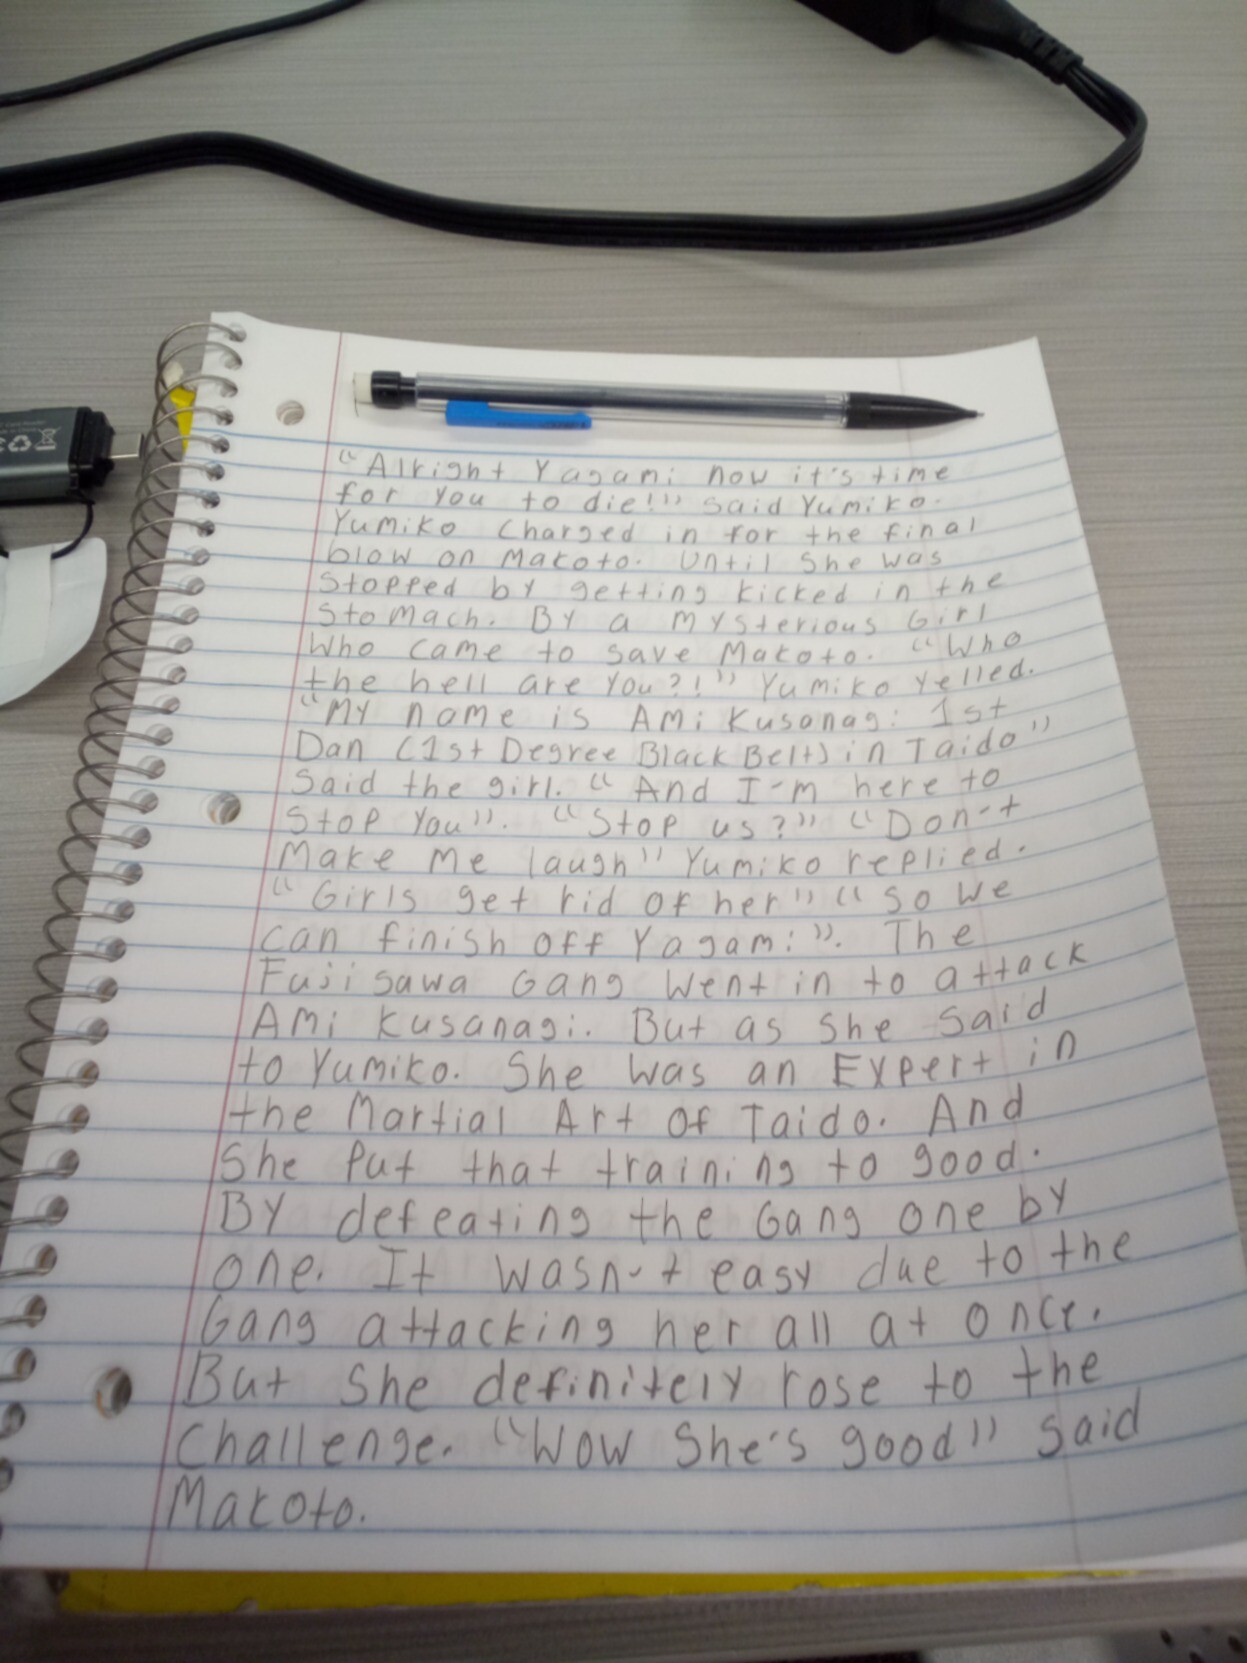 “Alright Yagami now it's time
for you to die!” said Yumiko.
Yumiko Charged in for the final
blow on Makoto. Until She was
Stopped by getting kicked in the
Stomach. By a Mysterious Girl
Who came to save Makoto. “Who
the hell are You?!” Yumiko Yelled.
“My name is Ami Kusanagi 1st
Dan (1st Degree Black Belt) in Taido”
Said the girl. “And I-m here to
Stop You”. “Stop us?” “Don-t
Make Me laugh” Yumiko replied.
“Girls get rid of her” “So We
Can finish off Yagami”. The
Fujisawa Gang Went in to attack
Ami Kusanagi. But as She Said
to Yumiko. She Was an Expert in
the Martial Art Of Taido. And
She Put that training to good.
By defeating the Gang one by
one. It Wasn-t easy due to the
Gang attacking her all at once.
But She definitely rose to the
Challenge. “Wow She's good” Said
Makoto.